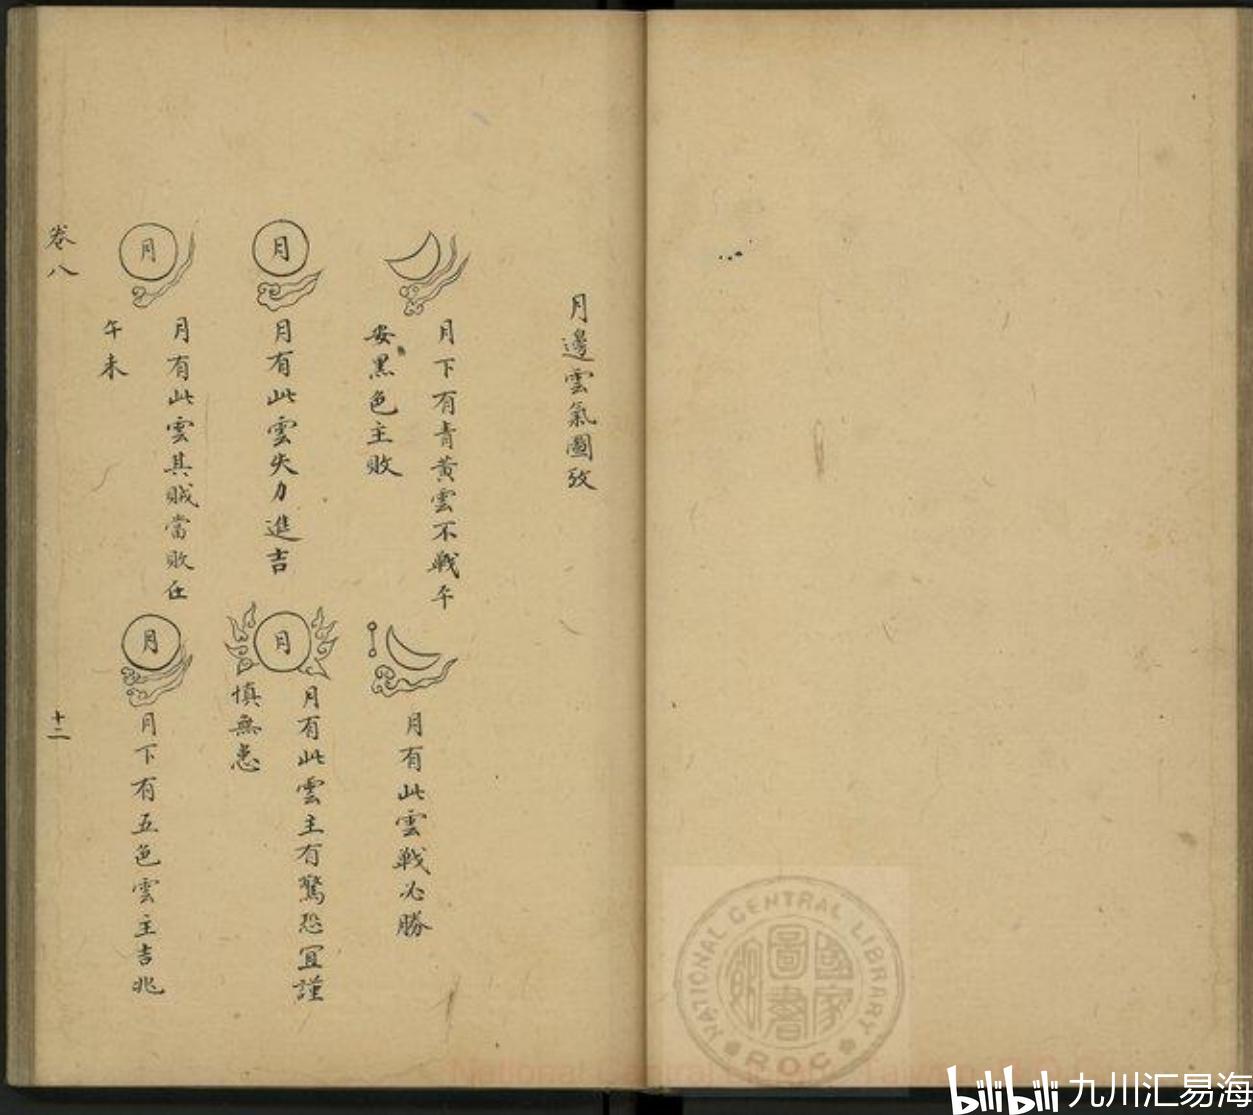 月邊雲氣圖攷
月下有青黃雲不戰平
安黑色主敗
月有此雲戰必勝
月
月有此雲失力進吉
月
月有此雲主有驚恐宜謹
慎無患
月
月有此雲其賊當敗在
午未
月
月下有五色雲主吉兆
卷八
十二
NATIONAL CENTRAL LIBRARY
R.O.C
國家
圖書
bilibili 九川汇易海